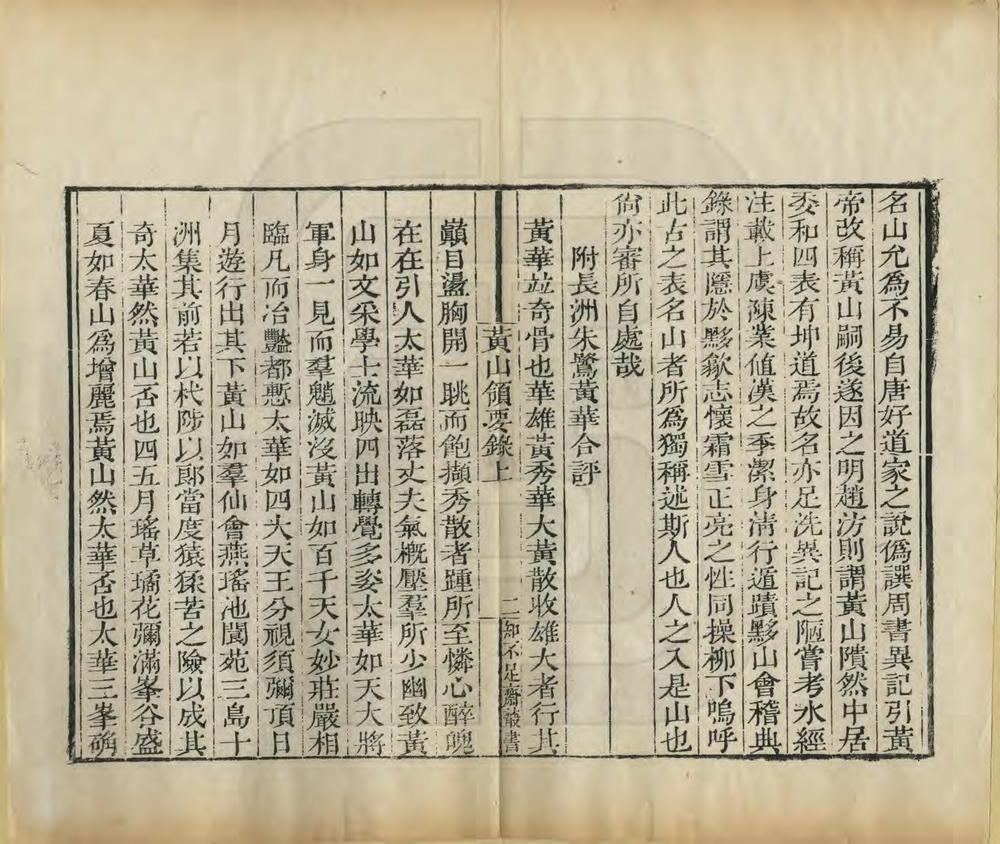 名山允爲不易自唐好道家之說僞譔周書異記引黃
帝故稱黃山嗣後遂因之明趙汸則謂黃山隤然中居
委和四表有坤道焉故名亦足洗異記之陋嘗考水經
注載上虞陳業値漢之季潔身清行遁蹟黟山會稽典
錄謂其隱於黟歙志懷霜雪正亮之性同操柳下嗚呼
此古之表名山者所爲獨稱述斯人也人之入是山也
尙亦審所自處哉
附長洲朱鷺黃華合評
黃華竝奇骨也華雄黃秀華大黃散收雄大者行其
黃山領要錄上
二
知不足齋叢書
巓目盪胸開一眺而飽擷秀散者踵所至憐心醉魄
在在引人太華如磊落丈夫氣概壓羣所少幽致黃
山如文采學士流映四出轉覺多姿太華如天大將
軍身一見而羣魈滅沒黃山如百千天女妙莊嚴相
臨凡而冶豔都慙太華如四大天王分視須彌頂日
月遊行出其下黃山如羣仙會燕瑤池閬苑三島十
洲集其前若以杙陟以郞當度猿猱苦之險以成其
奇太華然黃山否也四五月瑤草璚花彌滿峯谷盛
夏如春山爲增麗焉黃山然太華否也太華三峯确